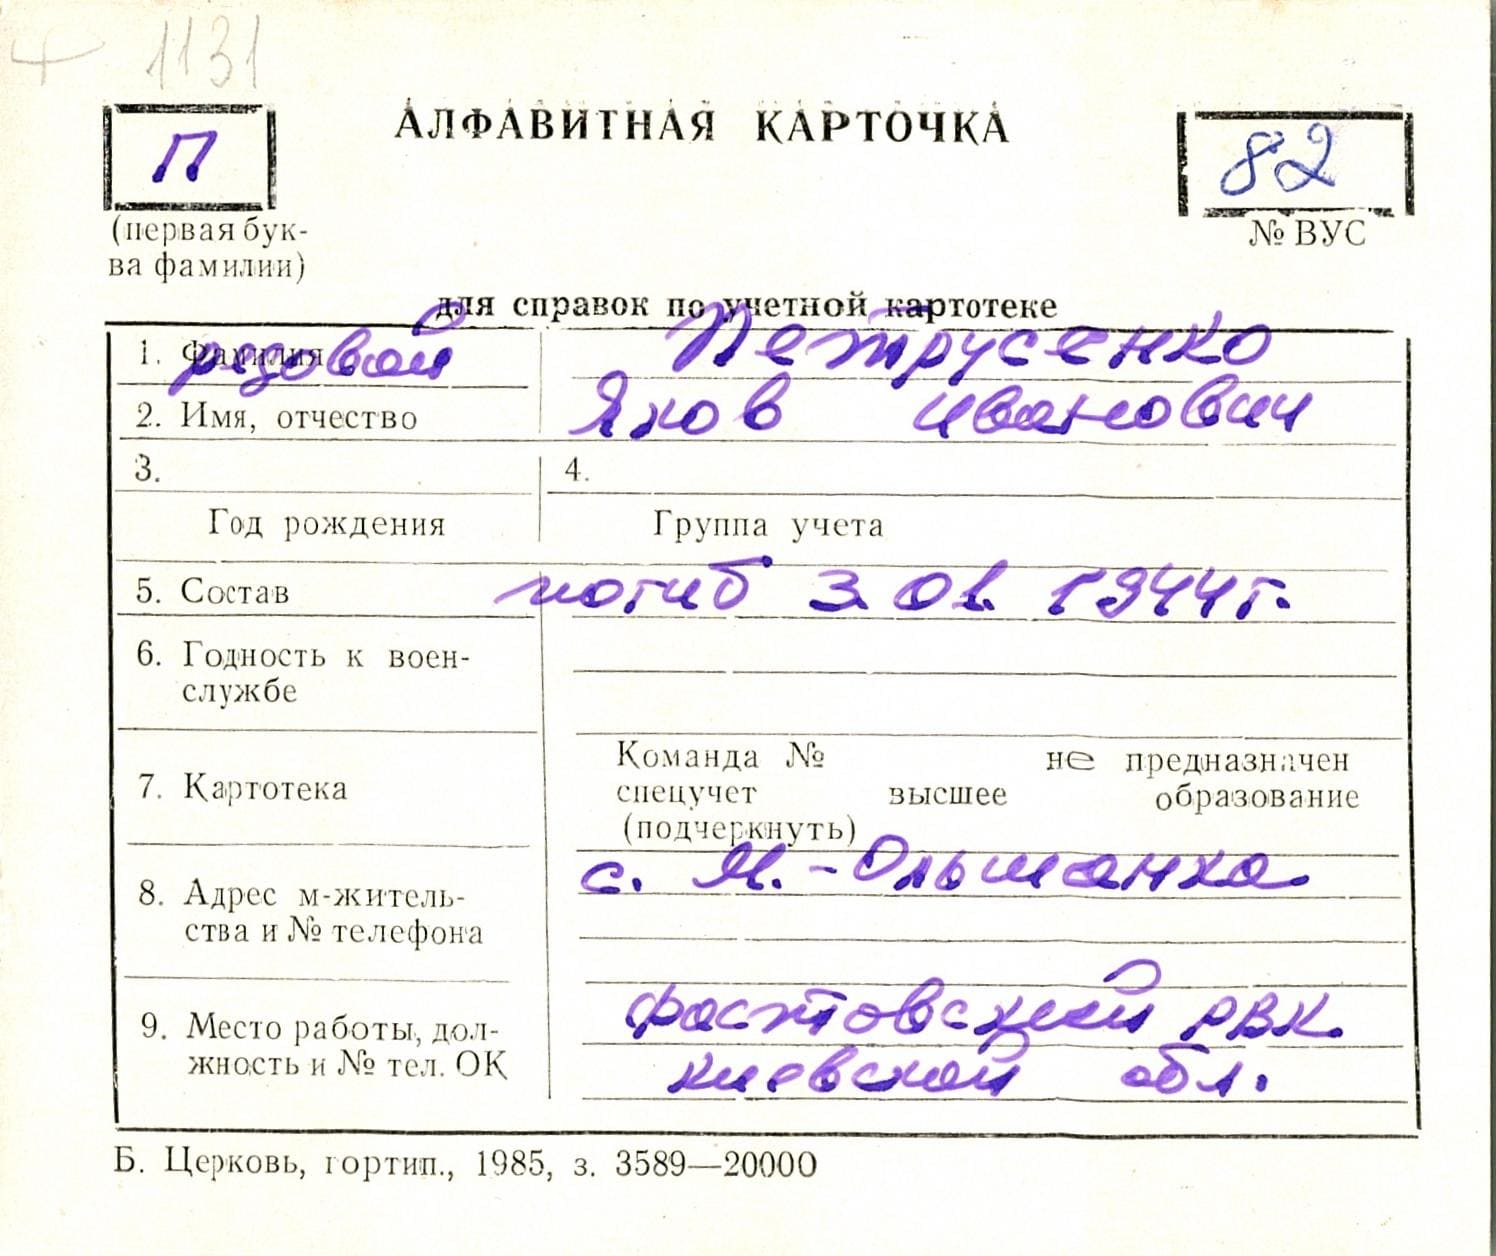 1131
П
АЛФАВИТНАЯ КАРТОЧКА
82
(первая бук-
ва фамилии)
№ ВУС
для справок по учетной картотеке
1. Фамилия
рядовой
Петрусенко
2. Имя, отчество
Яков Иванович
3.
4.
Год рождения
Группа учета
5. Состав
погиб 3.01.1944г.
6. Годность к воен-
службе
7. Картотека
Команда № не предназначен
спецучет высшее образование
(подчеркнуть)
8. Адрес м-житель-
ства и № телефона
с. М.-Ольшанка.
9. Место работы, дол-
жность и № тел. ОК
Фастовский РВК.
Киевской обл.
Б. Церковь, гортип., 1985, з. 3589—20000